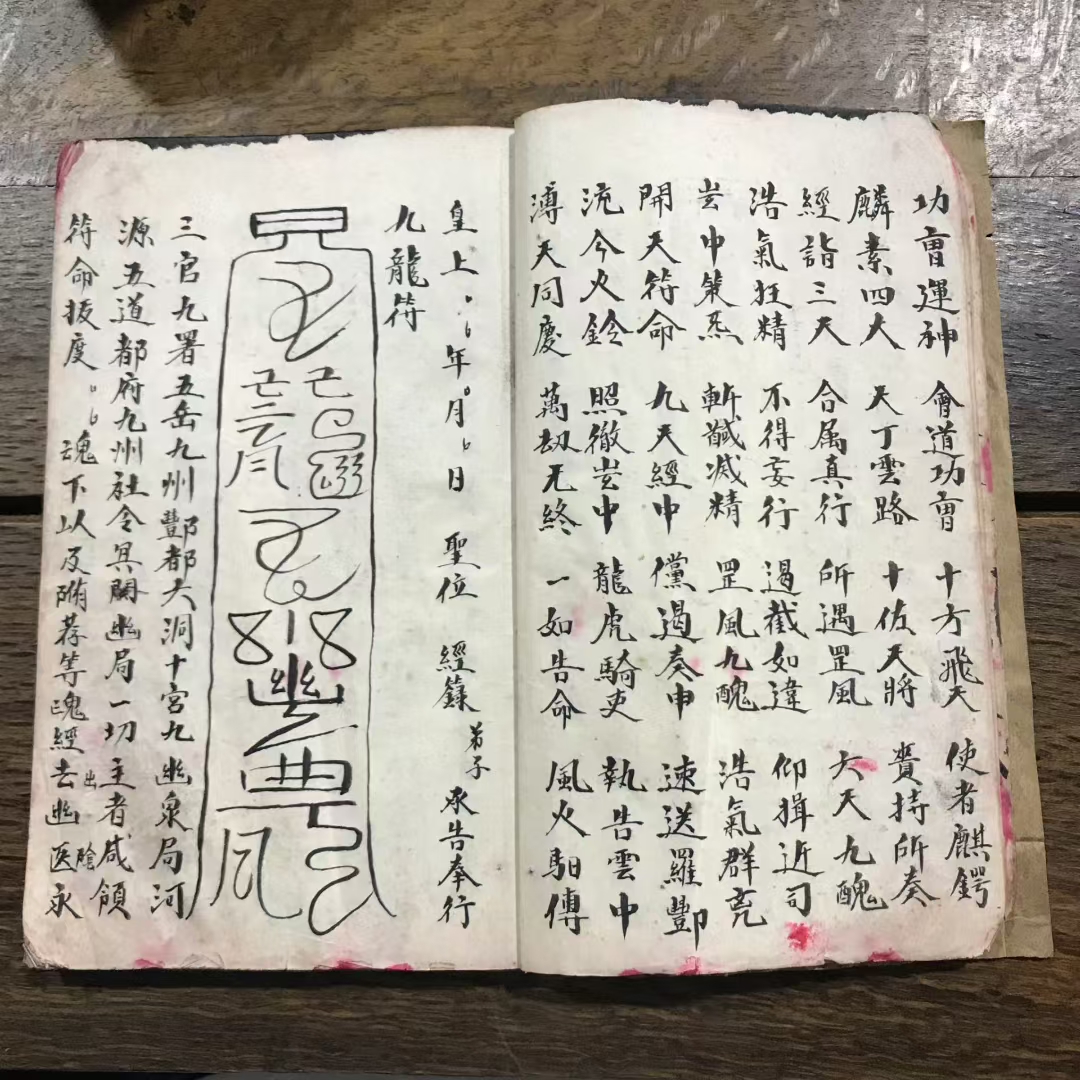 功曺運神 會道功曺 十方飛天 使者麒鍔
麟素四大 天丁雲路 十佐天將 賷持所奏
經詣三天 合属真行 所遇罡風 大天九醜
浩氣狂精 不得妄行 遏截如違 仰揖近司
豈中策炁 斬馘减精 罡風九醜 浩氣群
開天符命 九天經中 儻遏奏申 速送羅酆
流今火鈴 照徹豈中 龍虎騎吏 執告雲中
溥天同慶 萬劫无終 一如告命 風火馹傳
皇上 年 月 日 聖位 經籙弟子 承告奉行
九龍符
三官九署五岳九州酆都大洞十宮九幽泉局河
源五道都府九州社令冥關幽局一切主者咸領
符命拔度 魂下以及附荐等魂經去出幽医陰永